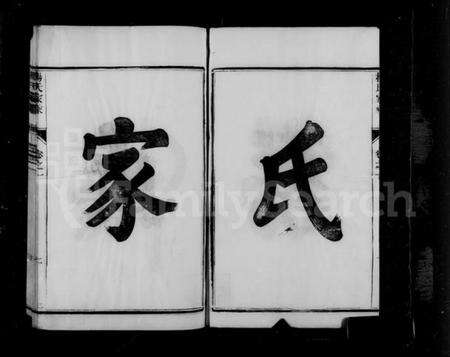 氏
家
FamilySearch